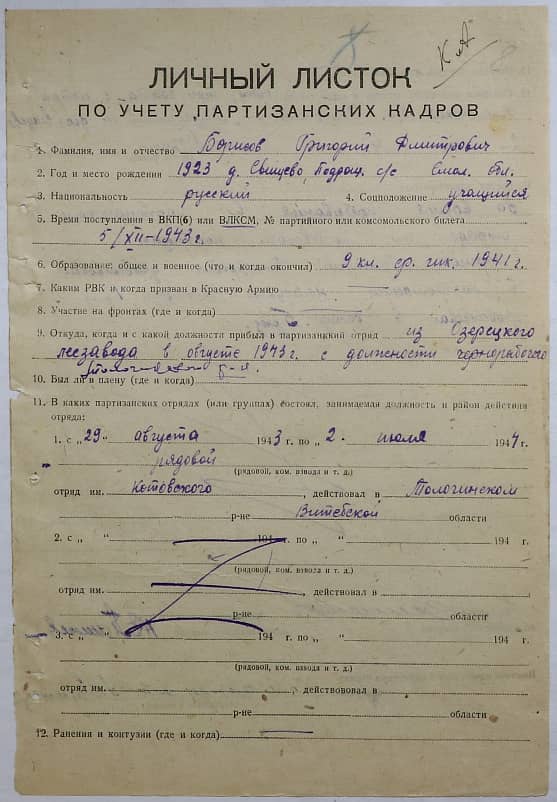 ЛИЧНЫЙ ЛИСТОК
ПО УЧЕТУ ПАРТИЗАНСКИХ КАДРОВ
1. Фамилия, имя и отчество Борисов Григорий Дмитрович
2. Год и место рождения 1923 д. Свищево, с/с Смол. обл.
3. Национальность русский 4. Соцположение учащийся
5. Время поступления в ВКП(б) или ВЛКСМ, № партийного или комсомольского билета
5/XII-1943г.
6. Образование: общее и военное (что и когда окончил) 9 кл. ср. шк. 1941г.
7. Каким РВК и когда призван в Красную Армию —
8. Участие на фронтах (где и когда) —
9. Откуда, когда и с какой должности прибыл в партизанский отряд из Озерецкого
лесзавода в августе 1943г. с должности чернорабочего
р-н.
10. Был ли в плену (где и когда) —
11. В каких партизанских отрядах (или группах) состоял, занимаемая должность и район действия
отряда:
1. с „29" августа 1943 г. по „2." июля 1944 г.
рядовой
(рядовой, ком. взвода и т. д.)
отряд им. Котовского, действовал в Толочинском
р-не Витебской области
2. с „ " 194 г. по „ " 194 г.
(рядовой, ком. взвода и т. д.)
отряд им. , действовал в
р-не области
3. с „ " 194 г. по „ " 194 г.
(рядовой, ком. взвода и т. д.)
отряд им. , действововал в
р-не области
12. Ранения и контузии (где и когда) —